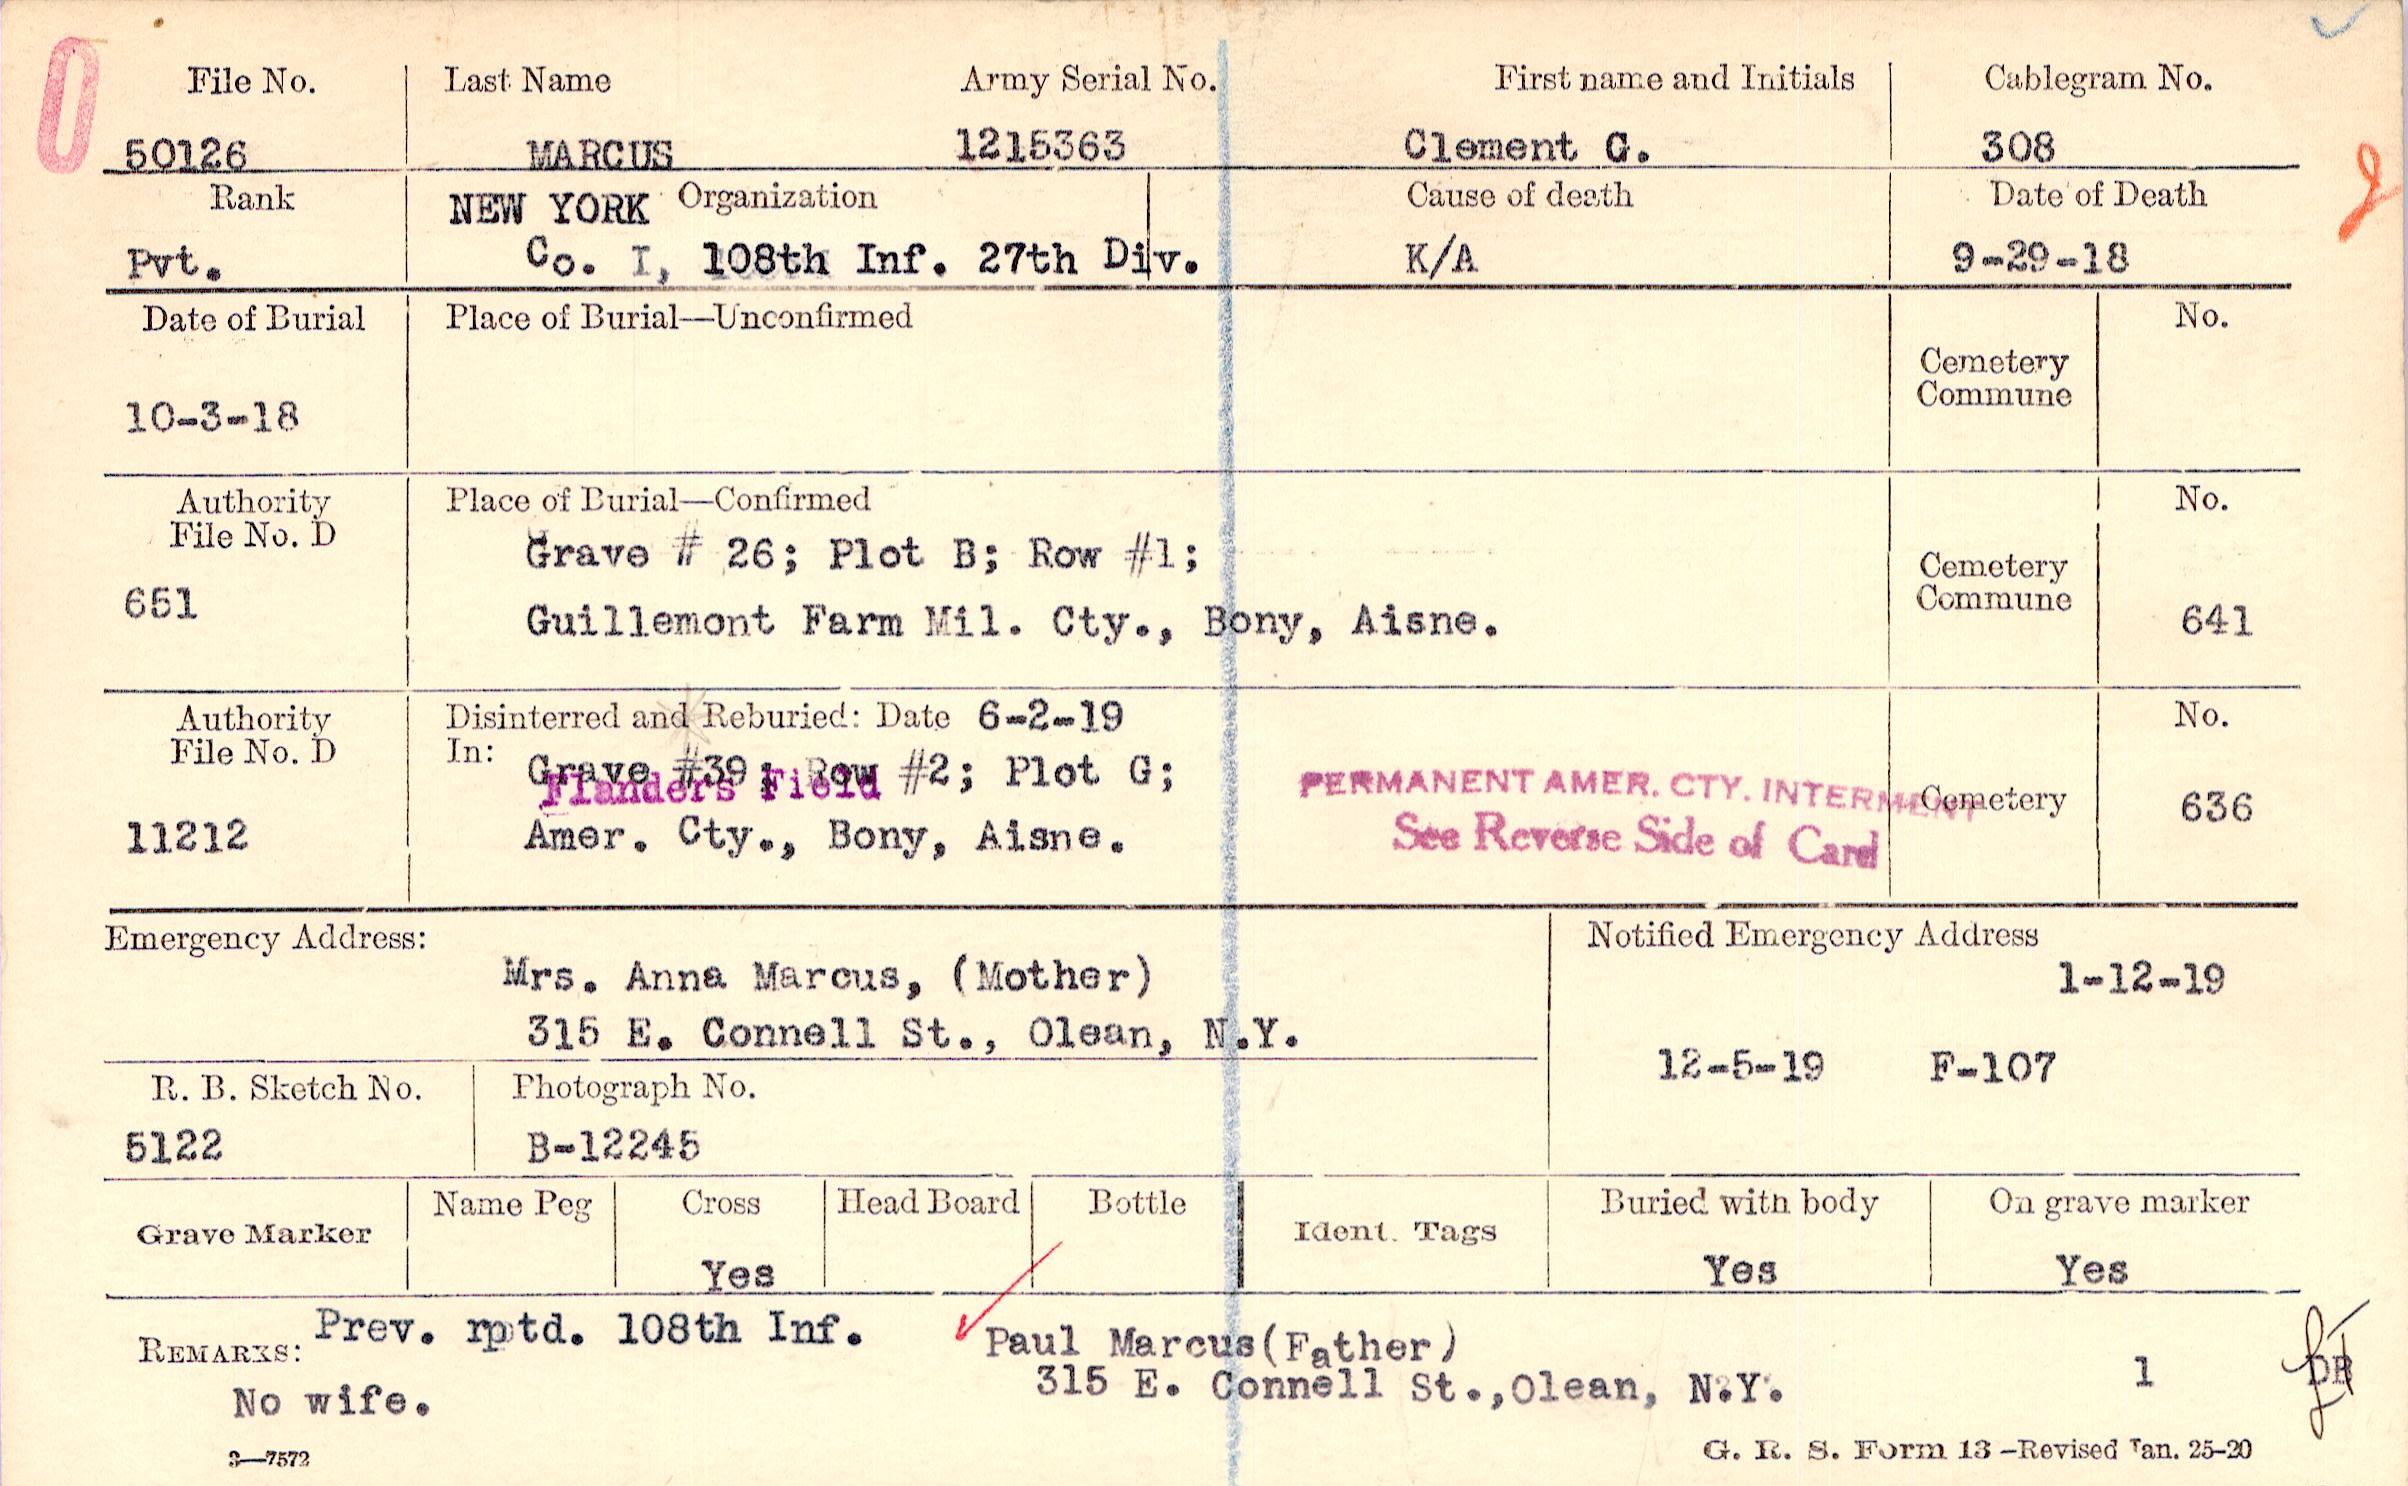 0
File No. Last Name Army Serial No. First name and Initials Cablegram No.
50126 MARCUS 1215363 Clement G. 308
Rank NEW YORK Organization Cause of death Date of Death
Pvt. Co. I, 108th Inf. 27th Div. K/A 9-29-18
Date of Burial Place of Burial—Unconfirmed No.
Cemetery
Commune
10-3-18
Authority Place of Burial—Confirmed No.
File No. D
Grave # 26; Plot B; Row #1;
Cemetery
Commune
651 Guillemont Farm Mil. Cty., Bony, Aisne. 641
Authority Disinterred and Reburied: Date 6-2-19 No.
File No. D In:
Grave #39; Row #2; Plot G;
Flanders Field PERMANENT AMER. CTY. INTERMENT Cemetery 636
11212 Amer. Cty., Bony, Aisne. See Reverse Side of Card
Emergency Address: Notified Emergency Address
Mrs. Anna Marcus, (Mother) 1-12-19
315 E. Connell St., Olean, N.Y.
12-5-19 F-107
R. B. Sketch No. Photograph No.
5122 B-12245
Name Peg Cross Head Board Bottle Buried with body On grave marker
Grave Marker Ident. Tags
Yes Yes Yes
Prev. rptd. 108th Inf. Paul Marcus(Father)
REMARKS:
No wife. 315 E. Connell St.,Olean, N.Y. 1
3—7572 G. R. S. Form 13 –Revised Jan. 25-20